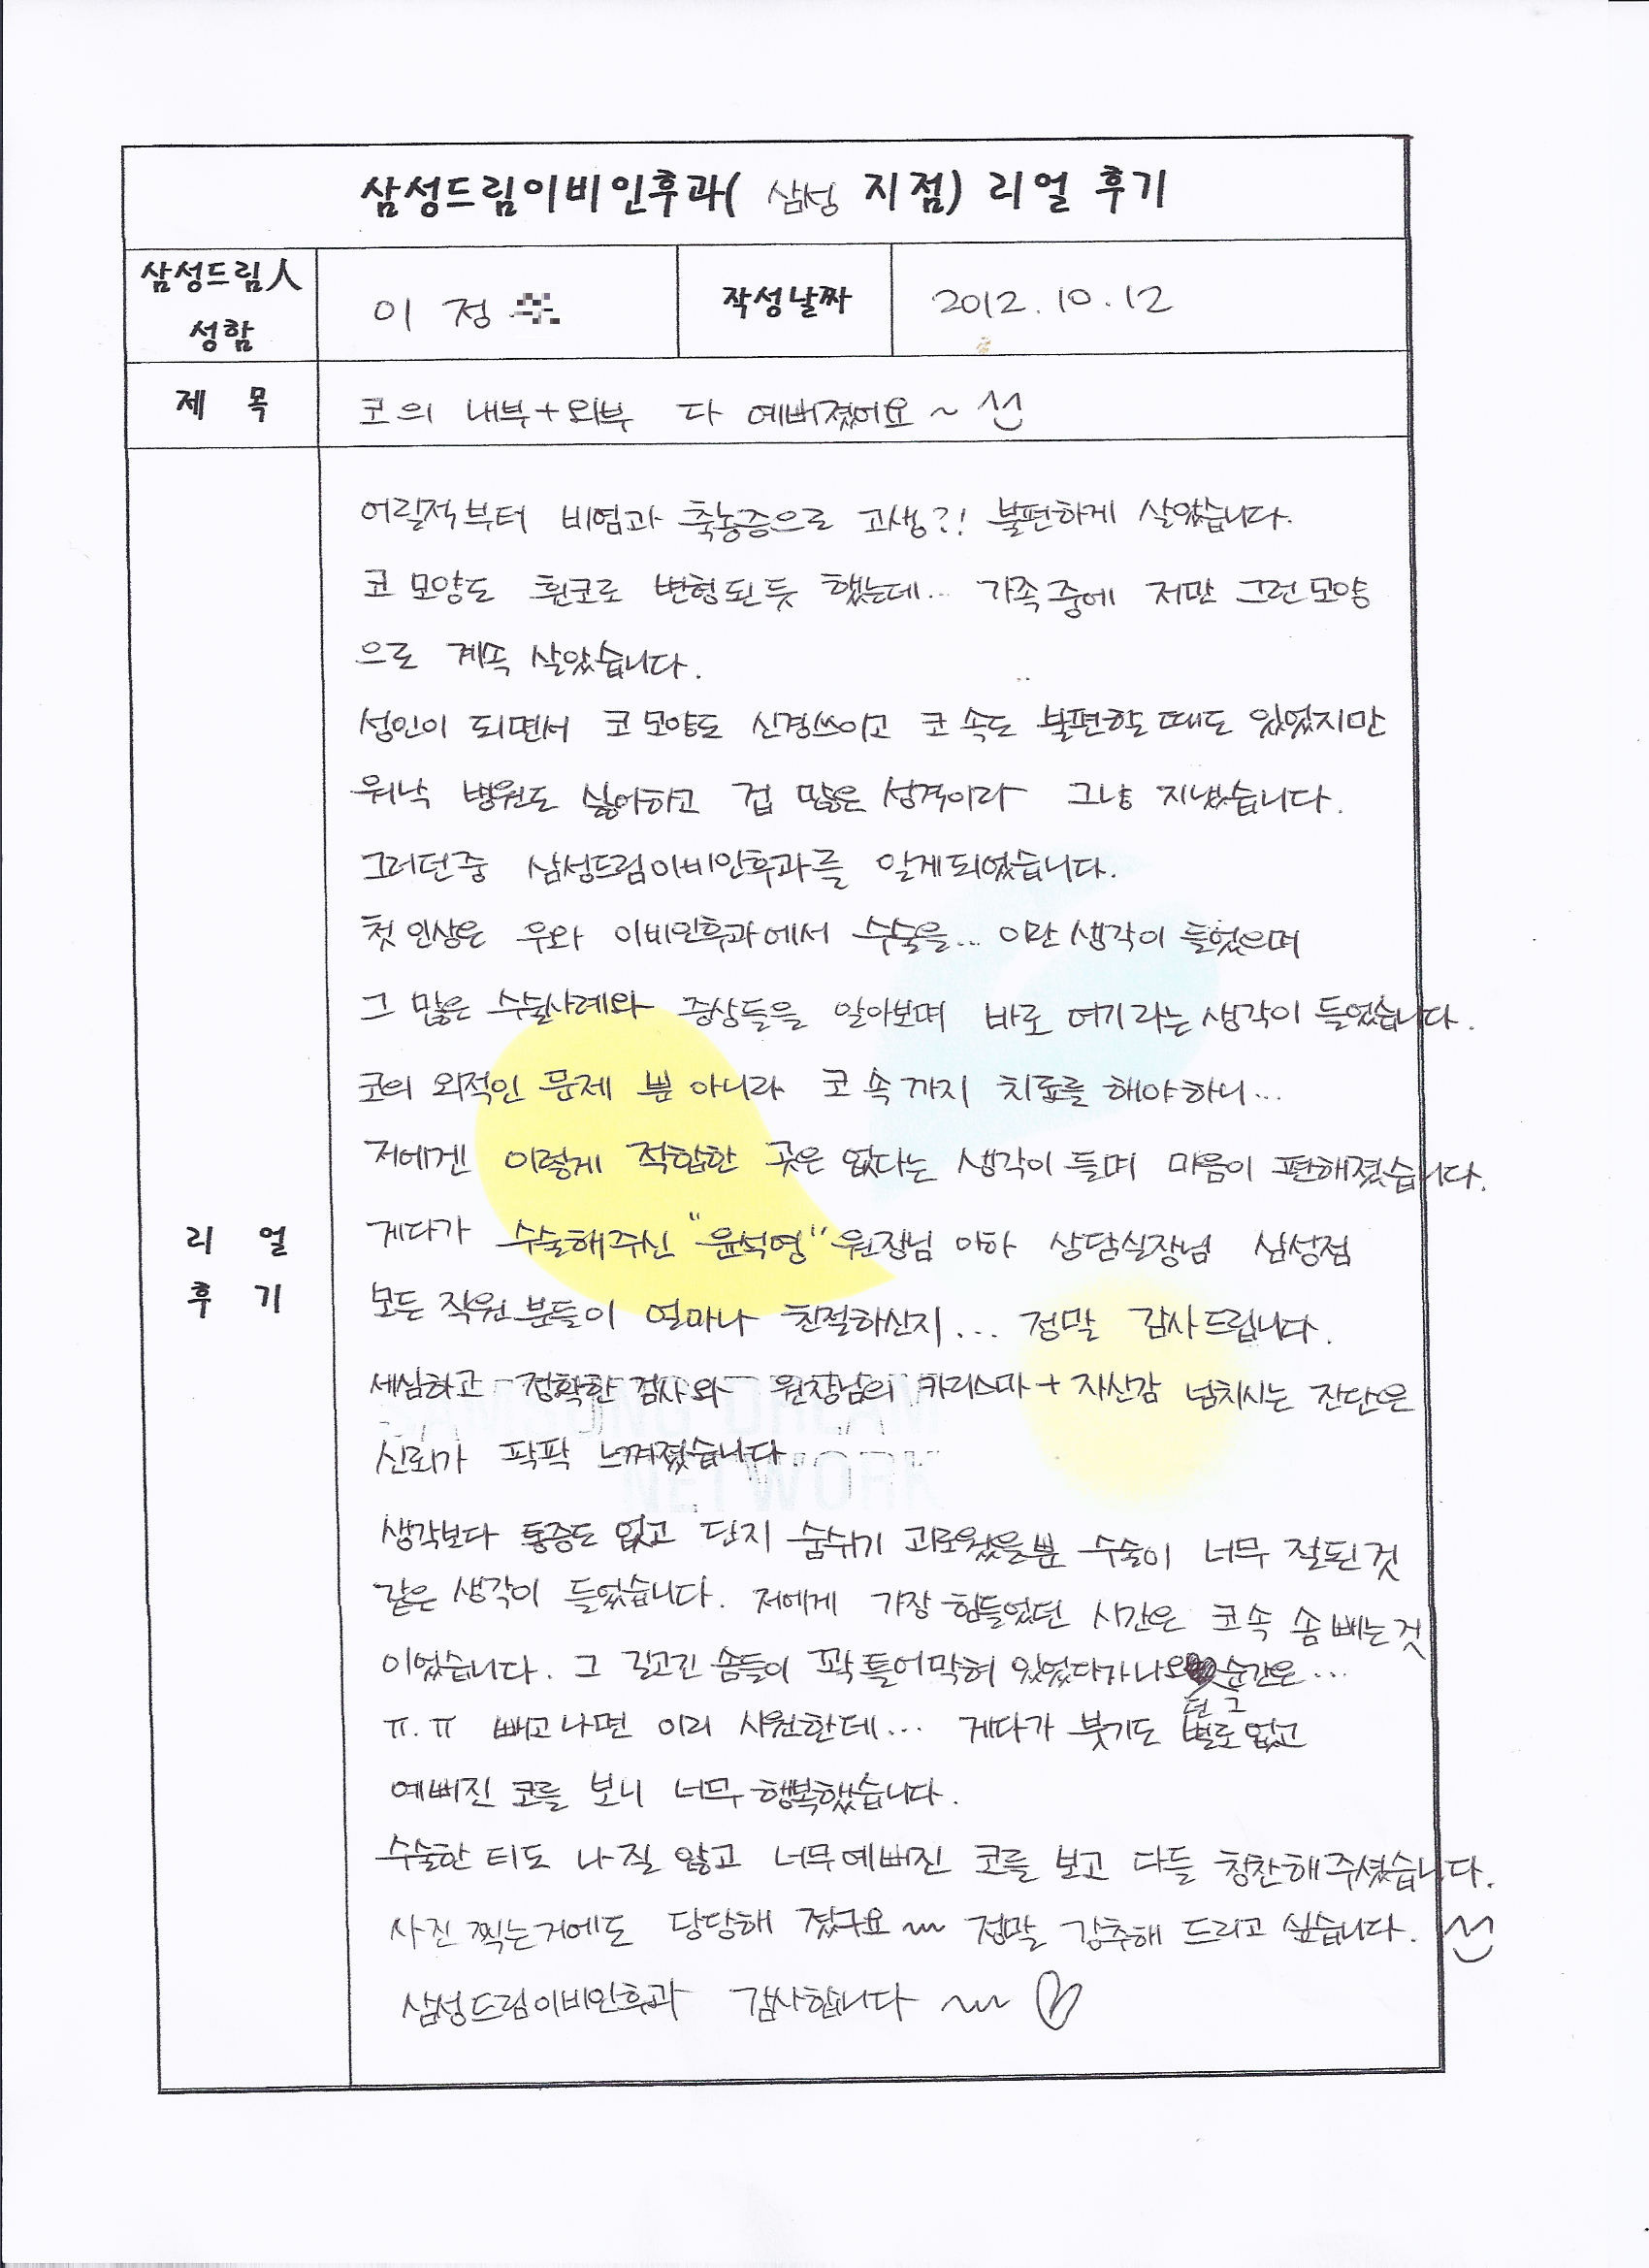 삼성드림이비인후과( 삼성 지점) 리얼 후기
삼성드림人 성함
이 정
작성날짜
2012.10.12
제 목
코의 내부+외부 다 예뻐졌어요~ ^^
리 얼 후 기
어릴적부터 비염과 축농증으로 고생?! 불편하게 살았습니다.
코 모양도 휜코로 변형된듯 했는데... 가족중에 저만 그런모양
으로 계속 살았습니다.
성인이 되면서 코 모양도 신경쓰이고 코 속도 불편할때도 있었지만
워낙 병원도 싫어하고 겁 많은 성격이라 그냥 지냈습니다.
그러던중 삼성드림이비인후과를 알게되었습니다.
첫 인상은 우와 이비인후과에서 수술을... 이란 생각이 들었으며
그 많은 수술사례와 증상들을 알아보며 바로 여기라는 생각이 들었습니다.
코의 외적인 문제 뿐 아니라 코 속까지 치료를 해야하니...
저에겐 이렇게 적합한 곳은 없다는 생각이 들며 마음이 편해졌습니다.
게다가 수술해주신 "윤석영" 원장님 이하 상담실장님 삼성점
모든 직원분들이 얼마나 친절하신지... 정말 감사드립니다.
세심하고 정확한 검사와 원장님의 카리스마+자신감 넘치시는 진단은
신뢰가 팍팍 느껴졌습니다.
SAMSUNG DREAM
NETWORK
생각보다 통증도 없고 단지 숨쉬기 괴로웠을뿐 수술이 너무 잘된것
같은 생각이 들었습니다. 저에게 가장 힘들었던 시간은 코속 솜 빼는것
이었습니다. 그 길고긴 솜들이 꽉 틀어막혀 있었다가 나오던 그 순간은...
ㅠ.ㅠ 빼고나면 이리 시원한데... 게다가 붓기도 별로없고
예뻐진 코를 보니 너무 행복했습니다.
수술한 티도 나질 않고 너무예뻐진 코를 보고 다들 칭찬해주셨습니다.
사진 찍는거에도 당당해 졌구요~ 정말 강추해 드리고 싶습니다. ^^
삼성드림이비인후과 감사합니다~ ♡